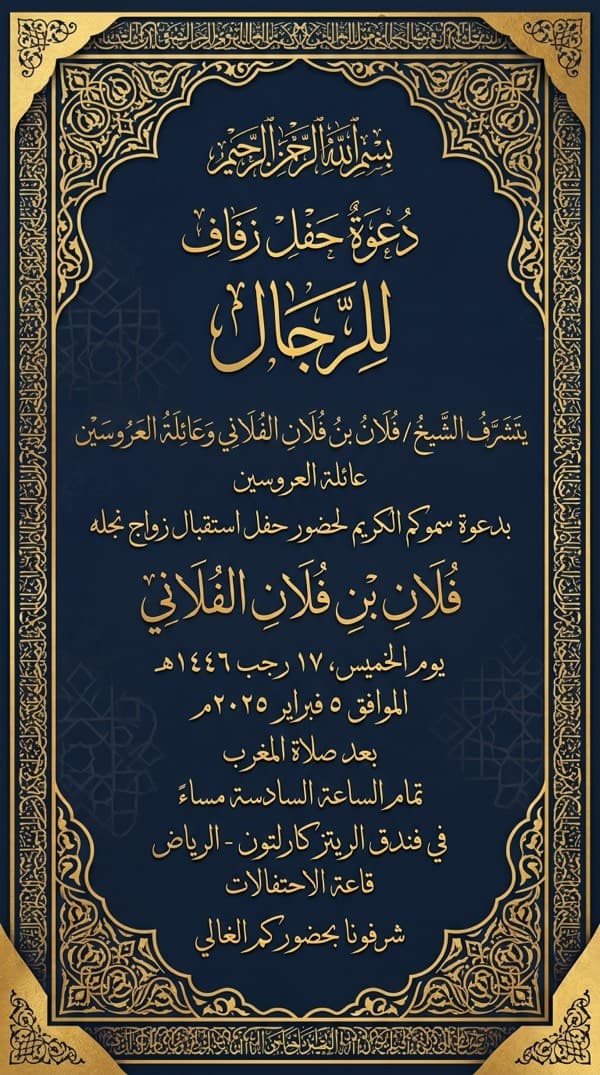 بِسْمِ ٱللَّهِ ٱلرَّحْمَٰنِ ٱلرَّحِيمِ
دُعْوَةُ حَفْلِ زَفَافِ
لِلرِّجَال
يَتَشَرَّفُ الشَّيخُ / فُلَانُ بنُ فُلَانِ الفُلَاني وَعَائِلَةُ العَرُوسَيْن
عائلة العروسين
بدعوة سموكم الكريم لحضور حفل استقبال زواج نجله
فُلَانِ بْنِ فُلَانِ الفُلَانِي
يوم الخميس، ١٧ رجب ١٤٤٦هـ
الموافق ٥ فبراير ٢٠٢٥م
بعد صلاة المغرب
تمام الساعة السادسة مساءً
في فندق الريتز كارلتون - الرياض
قاعة الاحتفالات
شرفونا بحضوركم الغالي